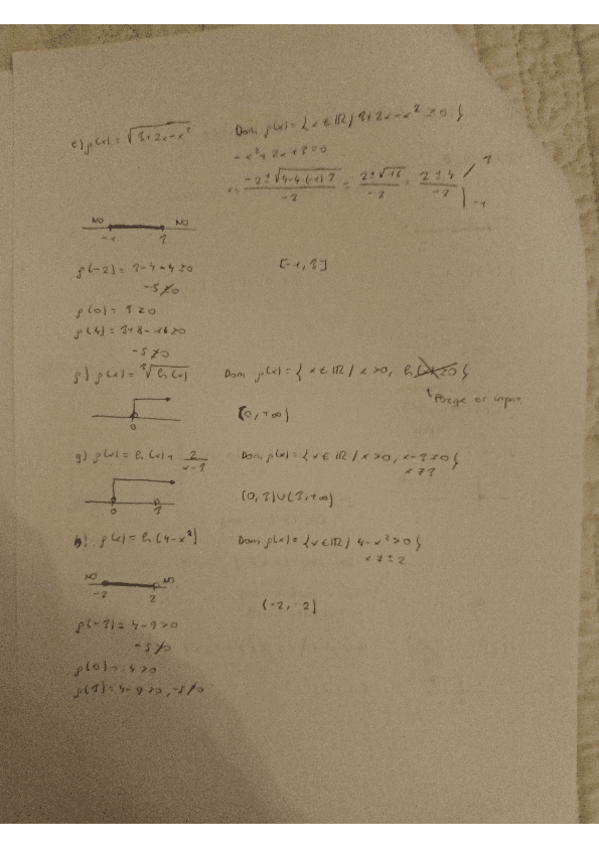 e) f(x) = √(3+2x-x²) Dom f(x) = {x ∈ ℝ / 3+2x-x² ≥ 0}
-x² + 2x + 3 = 0
x = (-2 ± √(4-4·(-1)·3))/-2 = (2 ± √16)/-2 = (2 ± 4)/-2 3 -1
NO NO
-1 3
f(-2) = 3-4-4 ≥ 0 [-1, 3]
-5 ≱ 0
f(0) = 3 ≥ 0
f(4) = 3+8-16 ≥ 0
-5 ≱ 0
f) f(x) = ³√(ln(x)) Dom f(x) = {x ∈ ℝ / x > 0, }
Porque es impar
0 (0, +∞)
g) f(x) = ln(x) + 2/(x-3) Dom f(x) = {x ∈ ℝ / x > 0, x-3 ≠ 0}
x ≠ 3
0 3 (0, 3) ∪ (3, +∞)
h) f(x) = ln(4-x²) Dom f(x) = {x ∈ ℝ / 4-x² > 0}
x ≠ ± 2
NO NO
-2 2 (-2, -2)
f(-3) = 4-9 > 0
-5 ≯ 0
f(0) = 4 > 0
f(3) = 4-9 > 0, -5 ≯ 0